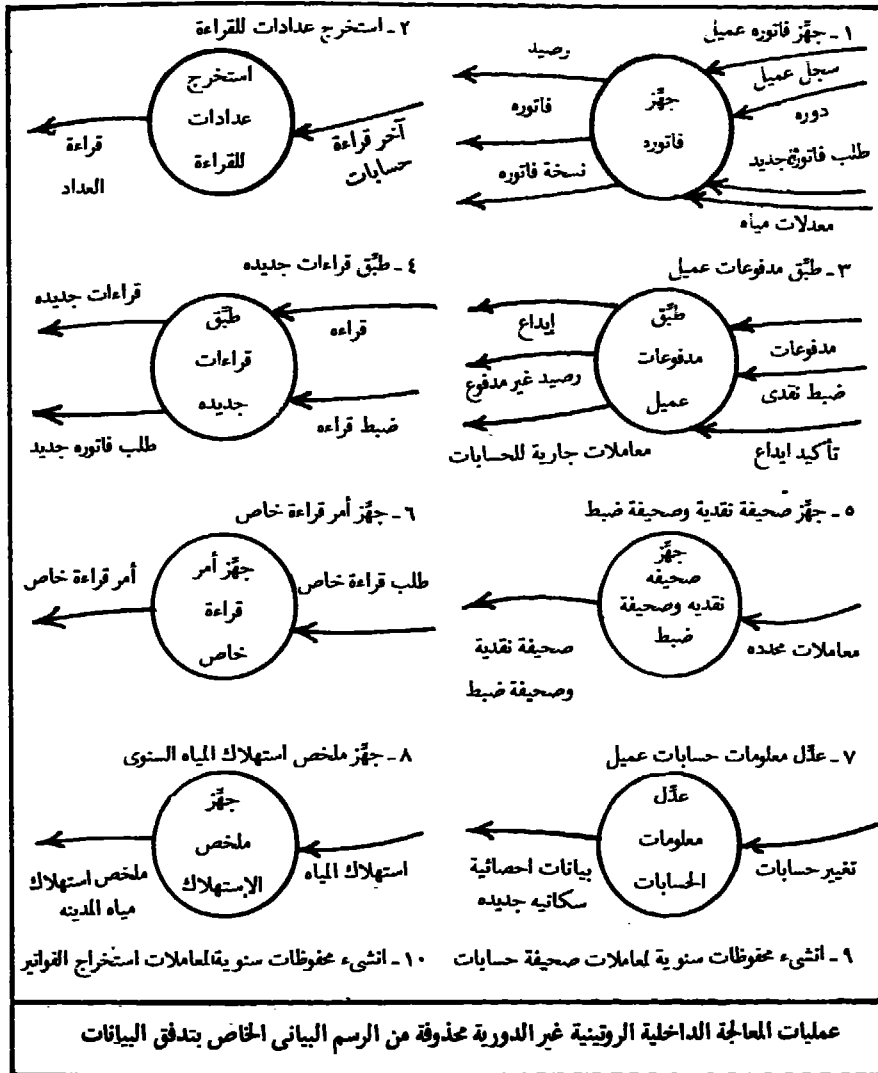 ١ـ جهِّز فاتوره عميل
سجل عميل
دوره
طلب فاتورة جديد
معدلات مياه
جهِّز
فاتوره
رصيد
فاتوره
نسخة فاتوره
٢ـ استخرج عدادات للقراءة
آخر قراءة
حسابات
استخرج
عدادات
للقراءة
قراءة
العداد
٣ـ طبِّق مدفوعات عميل
مدفوعات
ضبط نقدى
تأكيد ايداع
طبِّق
مدفوعات
عميل
إيداع
رصيد غير مدفوع
معاملات جارية للحسابات
٤ـ طبِّق قراءات جديده
قراءه
ضبط قراءه
طبِّق
قراءات
جديده
قراءات جديده
طلب فاتوره جديد
٥ـ جهِّز صحيفة نقدية وصحيفة ضبط
معاملات محدده
جهِّز
صحيفه
نقديه وصحيفة
ضبط
صحيفة نقدية
وصحيفة ضبط
٦ـ جهِّز أمر قراءة خاص
طلب قراءة خاص
جهِّز أمر
قراءة
خاص
أمر قراءة خاص
٧ـ عدِّل معلومات حسابات عميل
تغيير حسابات
عدِّل
معلومات
الحسابات
بيانات احصائية
سكانيه جديده
٨ـ جهِّز ملخص استهلاك المياه السنوى
استهلاك المياه
جهِّز
ملخص
الإستهلاك
ملخص استهلاك
مياه المدينه
٩ـ انشىء محفوظات سنوية لمعاملات صحيفة حسابات
١٠ـ انشىء محفوظات سنوية لمعاملات استخراج الفواتير
عمليات المعالجة الداخلية الروتينية غير الدورية محذوفة من الرسم البيانى الخاص بتدفق البيانات